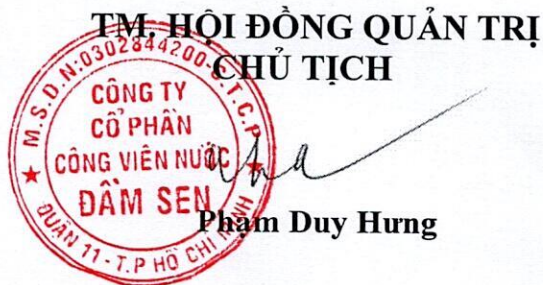 TM. HỘI ĐỒNG QUẢN TRỊ
CHỦ TỊCH
M.S.D.N:0302844200-C.T.C.P
CÔNG TY
CỔ PHẦN
CÔNG VIÊN NƯỚC
ĐẦM SEN
QUẬN 11-T.P HỒ CHÍ MINH
Phạm Duy Hưng